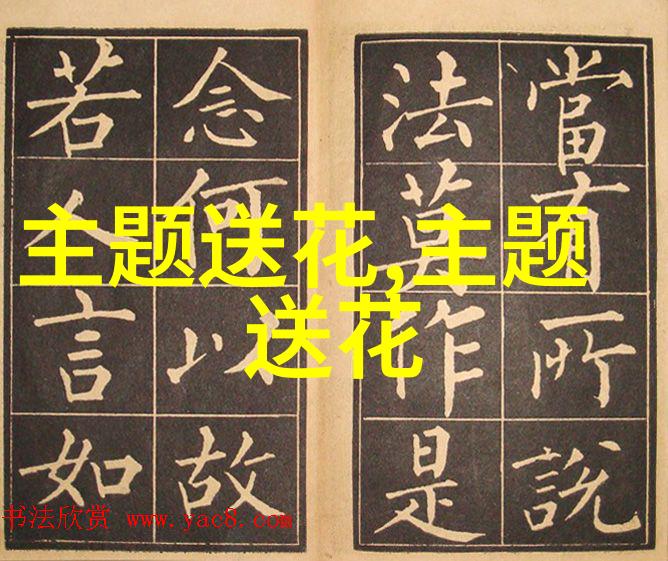 當有所說
法莫作是
念何以故
若人言如
主题送花,主题
送花
书法欣赏 www.yac8.com